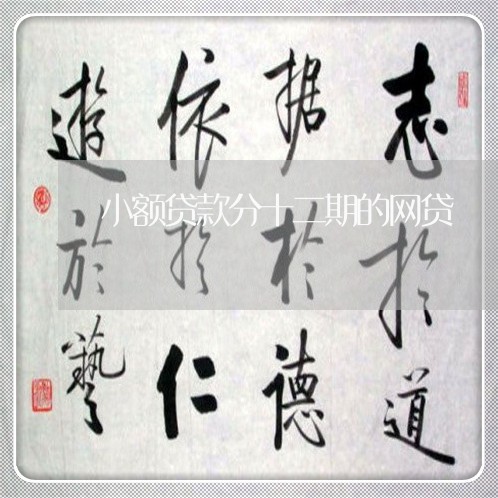 志於道
据於德
依於仁
遊於藝
小额贷款分十二期的网贷